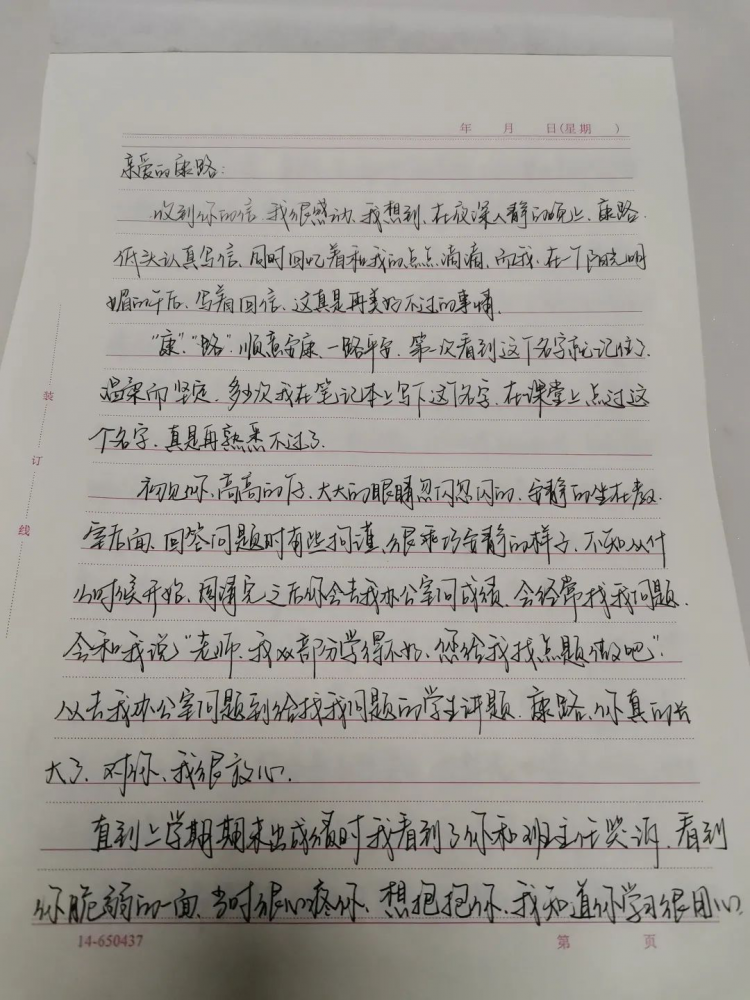 年 月 日(星期 )
亲爱的康路:
收到你的信,我很感动,我想到,在夜深人静的晚上,康路
低头认真写信,同时回忆着和我的点点滴滴,而我,在一个阳光明
媚的午后,写着回信,这真是再美好不过的事情.
“康”、“路”,顺意安康,一路平安,第一次看到这个名字就记住了.
温柔而坚定,多少次我在笔记本上写下这个名字,在课堂上点过这
个名字,真是再熟悉不过了.
初见你,高高的个子,大大的眼睛忽闪忽闪的,安静的坐在教
室后面,回答问题时有些拘谨,很乖巧安静的样子,不知从什
么时候开始,周清完之后你会去我办公室问成绩,会经常找我问题,
会和我说“老师,我xx部分学得不好,您给我找点题做吧”.
从去我办公室问题到给找我问题的学生讲题,康路,你真的长
大了,对你,我很放心.
直到上学期期末出成绩时我看到了你和班主任哭诉,看到
你脆弱的一面,当时很心疼你,想抱抱你,我知道你学习很用心,
装
订
线
14-650437
第 页